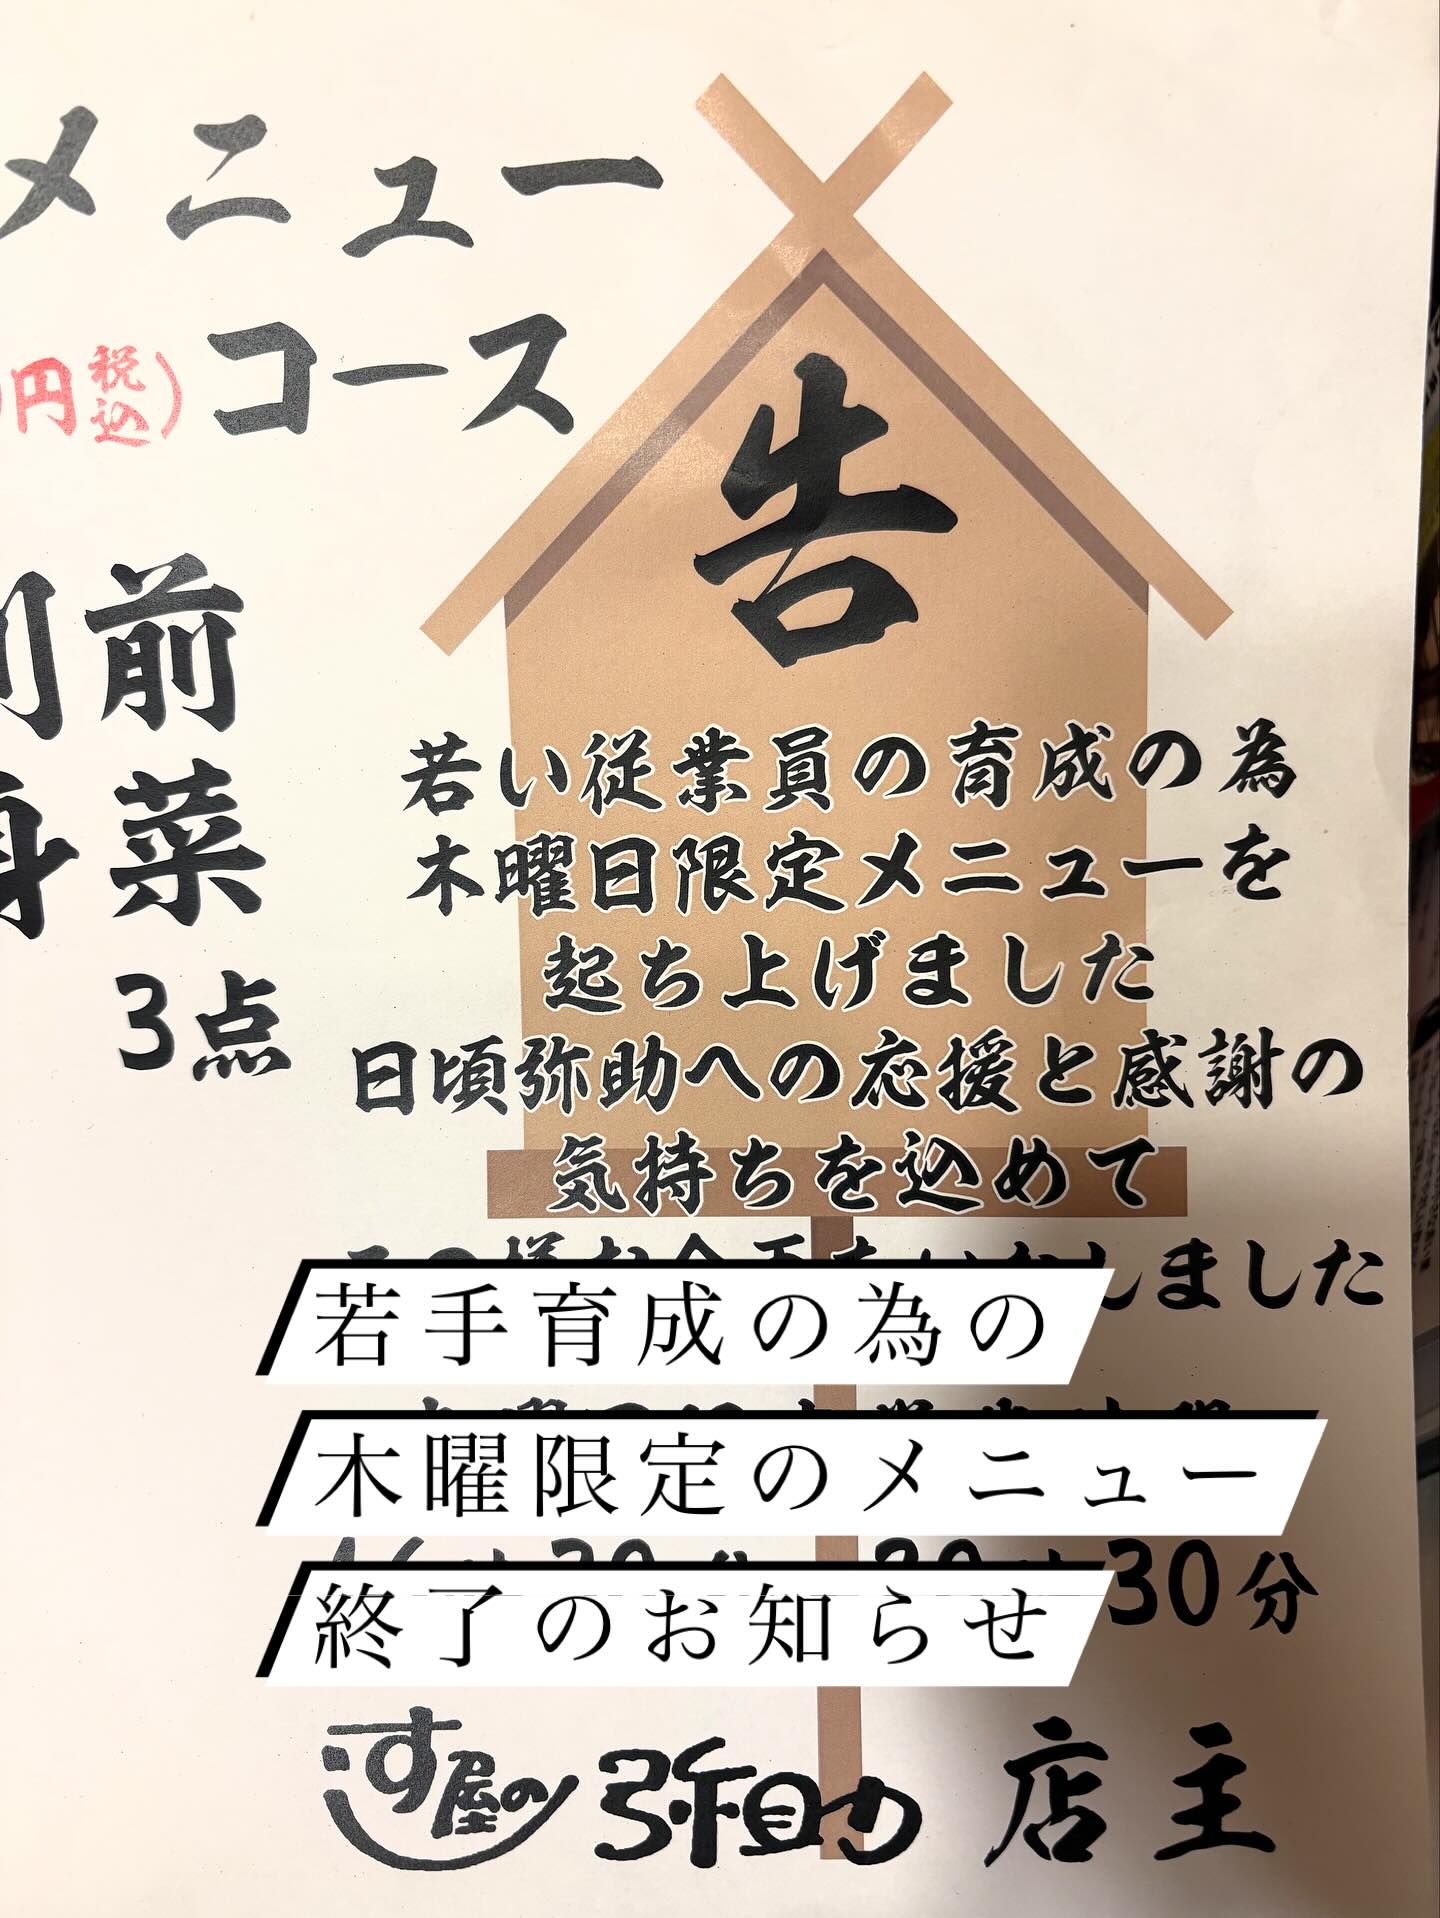 メニュー
円税込）コース
前
菜
3点
告
若い従業員の育成の為
木曜日限定メニューを
起ち上げました
日頃弥助への応援と感謝の
気持ちを込めて
しました
若手育成の為の
木曜限定のメニュー
30分
終了のお知らせ
すし屋の 弥助 店主